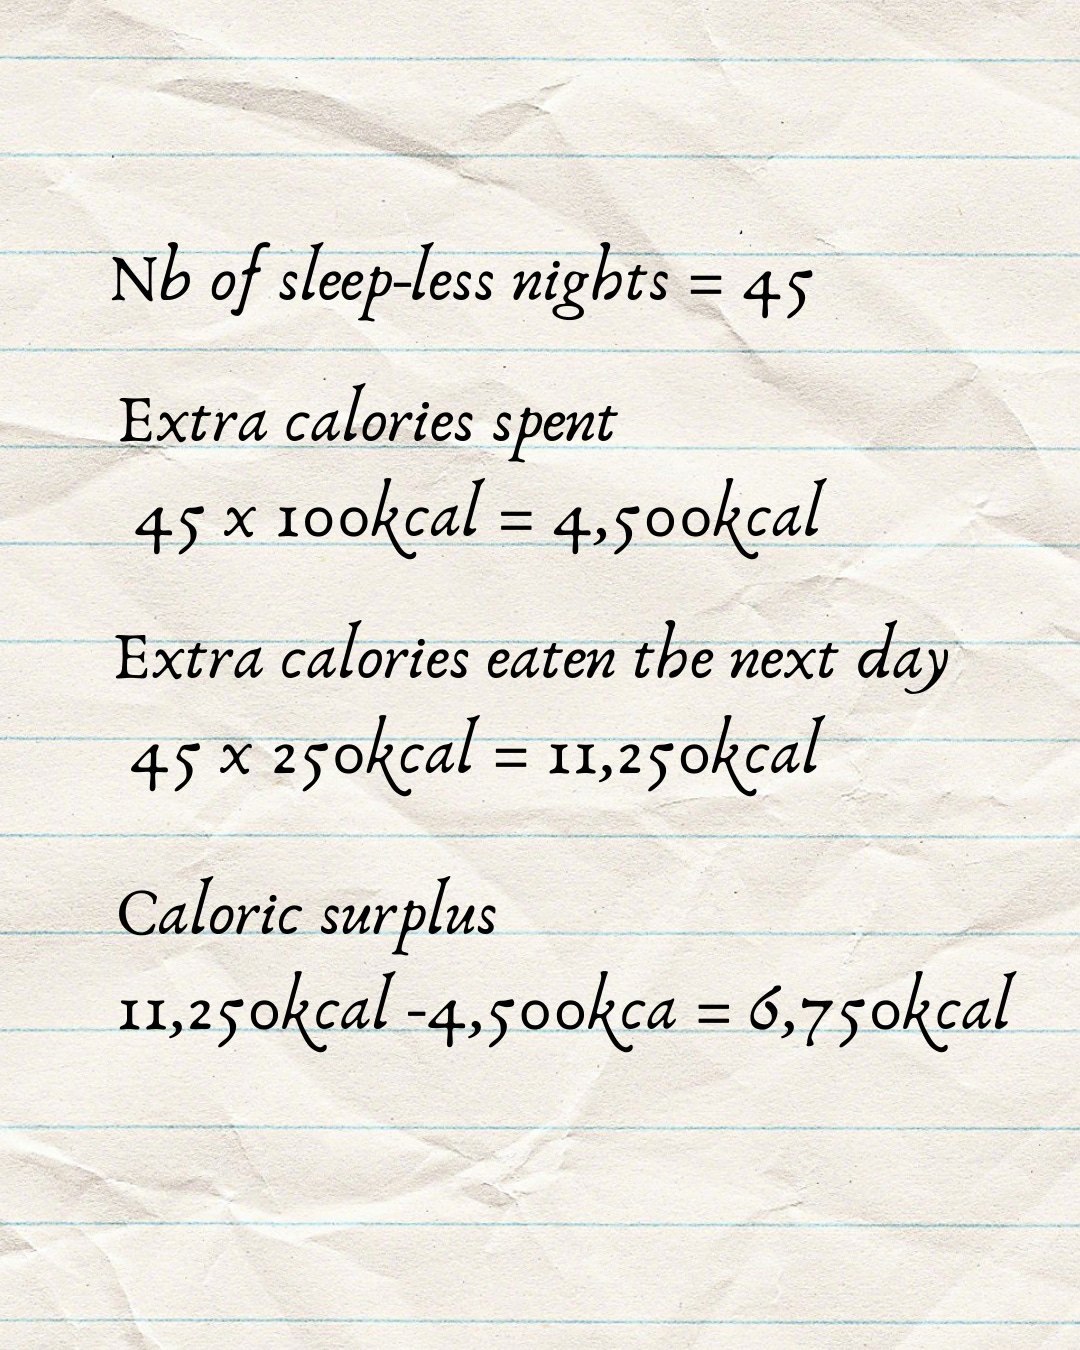 Nb of sleep-less nights = 45
Extra calories spent
45 x 100kcal = 4,500kcal
Extra calories eaten the next day
45 x 250kcal = 11,250kcal
Caloric surplus
11,250kcal -4,500kca = 6,750kcal